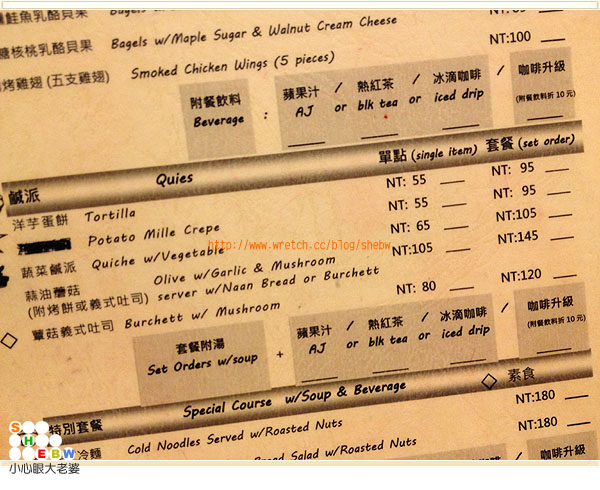 鮭魚乳酪貝果 Bagels
糖核桃乳酪貝果 Bagels w/Maple Sugar & Walnut Cream Cheese NT:100
烤雞翅 (五支雞翅) Smoked Chicken Wings (5 pieces)
附餐飲料 Beverage : 蘋果汁 AJ / or 熱紅茶 blk tea / or 冰滴咖啡 iced drip / 咖啡升級 (附餐飲料折 10 元)
鹹派 Quies 單點 (single item) 套餐 (set order)
洋芋蛋餅 Tortilla NT: 55 NT: 95
Potato Mille Crepe NT: 55 NT: 95
蔬菜鹹派 Quiche w/Vegetable NT: 65 NT:105
蒜油蘑菇 Olive w/Garlic & Mushroom NT:105 NT:145
(附烤餅或義式吐司) server w/Naan Bread or Burchett
蕈菇義式吐司 Burchett w/ Mushroom NT: 80 NT:120
套餐附湯 Set Orders w/soup + 蘋果汁 AJ / or 熱紅茶 blk tea / or 冰滴咖啡 iced drip / 咖啡升級 (附餐飲料折 10 元)
特別套餐 Special Course w/Soup & Beverage 素食
冷麵 Cold Noodles Served w/Roasted Nuts NT:180
Bread Salad w/Roasted Nuts NT:180
蘋果汁 / 熱紅茶 / 冰滴咖啡 / 咖啡升級
http://www.wretch.cc/blog/shebw
SHEBW
小心眼大老婆